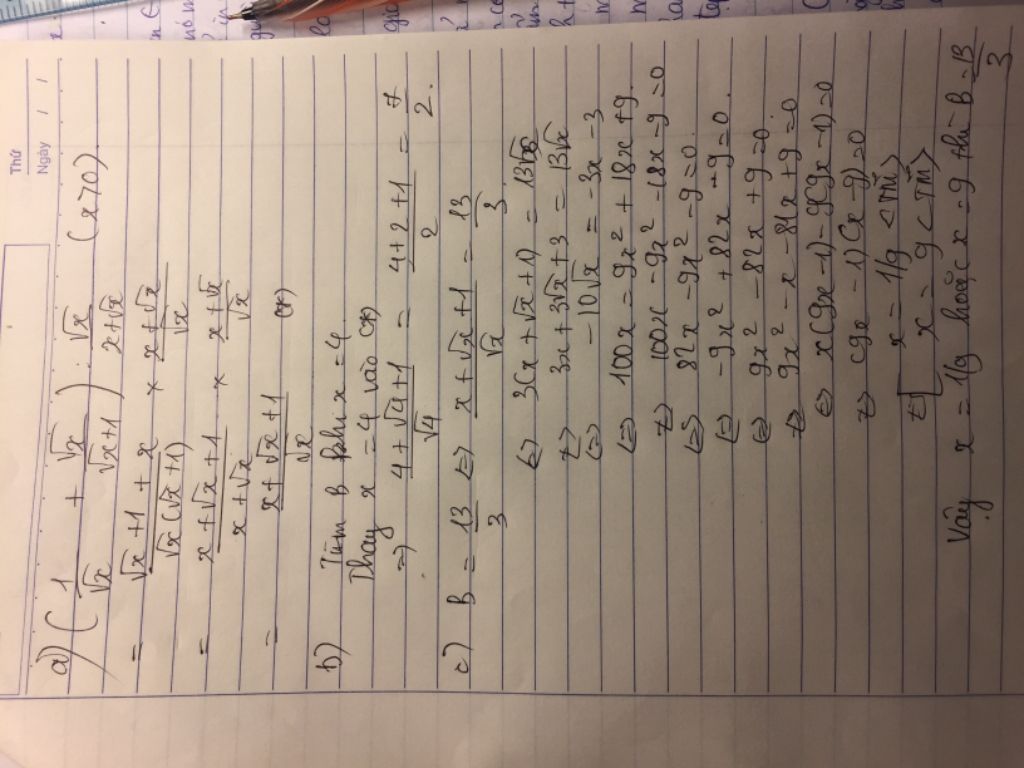 Thứ
Ngày / /
a) ( 1/√x + √x/(√x+1) ) : √x/(x+√x) (x>0)
= (√x + 1 + x)/(√x(√x+1)) × (x+√x)/√x
= (x+√x+1)/(x+√x) × (x+√x)/√x
= (x+√x+1)/√x (*)
b) Tìm B khi x = 4
Thay x = 4 vào (*)
=> (4+√4+1)/√4 = (4+2+1)/2 = 7/2.
c) B = 13/3 <=> (x+√x+1)/√x = 13/3
<=> 3(x+√x+1) = 13√x
<=> 3x+3√x+3 = 13√x
<=> -10√x = -3x-3
<=> 100x = 9x² + 18x + 9.
<=> 100x - 9x² - 18x - 9 = 0
<=> 82x - 9x² - 9 = 0
<=> -9x² + 82x - 9 = 0.
<=> 9x² - 82x + 9 = 0
<=> 9x² - x - 81x + 9 = 0
<=> x(9x-1) - 9(9x-1) = 0
<=> (9x-1)(x-9) = 0
<=> [ x = 1/9 <TM>
x = 9 <TM>
Vậy x = 1/9 hoặc x = 9 thì B = 13/3